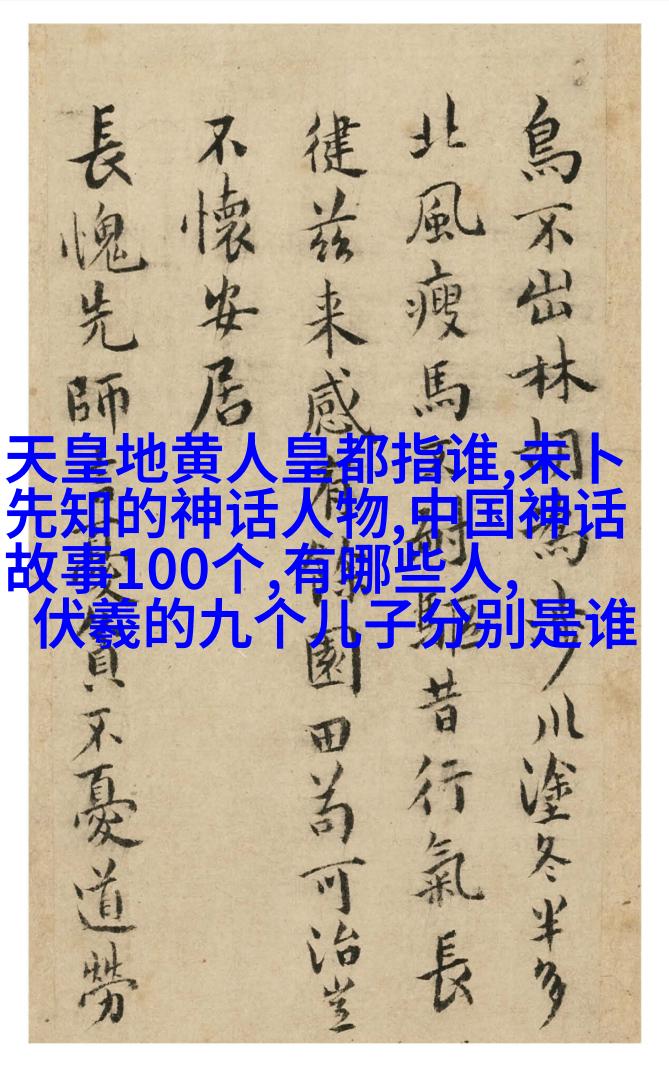 天皇地黄人皇都指谁,未卜
先知的神话人物,中国神话
故事100个,有哪些人,
伏羲的九个儿子分别是谁
鳥不出林胡為乎川塗冬半多
北風瘦馬不耐驅昔行氣長
徤茲来感有條園田苟可治豈
不懷安居
長愧先師言憂貧不憂道勞